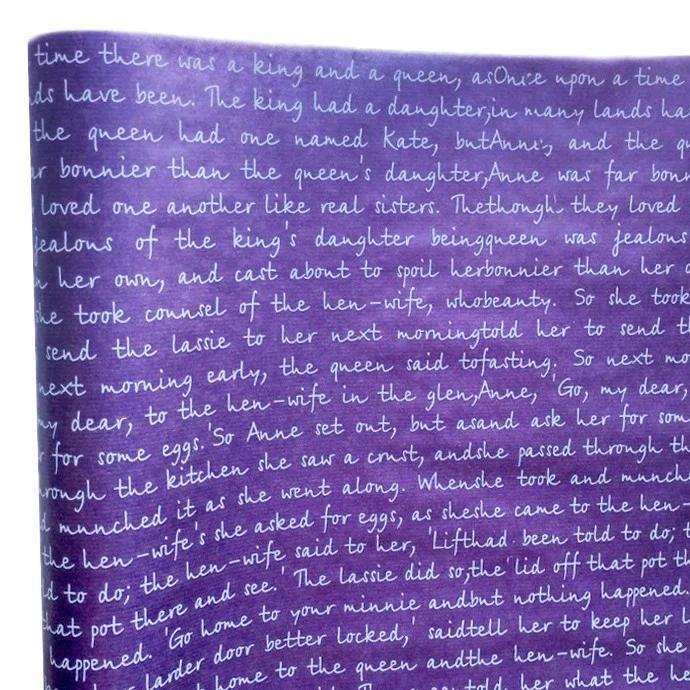 time there was a king and a queen, asOnce upon a time
ds have been. The king had a daughter,in many lands ha
the queen had one named Kate, butAnne, and the qu
ar bonnier than the queen's daughter,Anne was far bonn
loved one another like real sisters. Thethough they loved
jealous of the king's daughter beingqueen was jealous
n her own, and cast about to spoil herbonnier than her o
she took counsel of the hen-wife, whobeauty. So she took
send the lassie to her next morningtold her to send th
next morning early, the queen said tofasting. So next mo
my dear, to the hen-wife in the glen,Anne, 'Go, my dear,
r for some eggs.'So Anne set out, but asand ask her for som
rough the kitchen she saw a crust, andshe passed through th
d munched it as she went along. Whenshe took and munch
the hen-wife's she asked for eggs, as sheshe came to the hen-
ld to do; the hen-wife said to her, 'Lifthad been told to do; t
that pot there and see.' The lassie did so,the'lid off that pot th
happened. 'Go home to your minnie andbut nothing happened.
her larder door better locked,' saidtell her to keep her l
home to the queen andthe hen-wife. So she
told her what the he